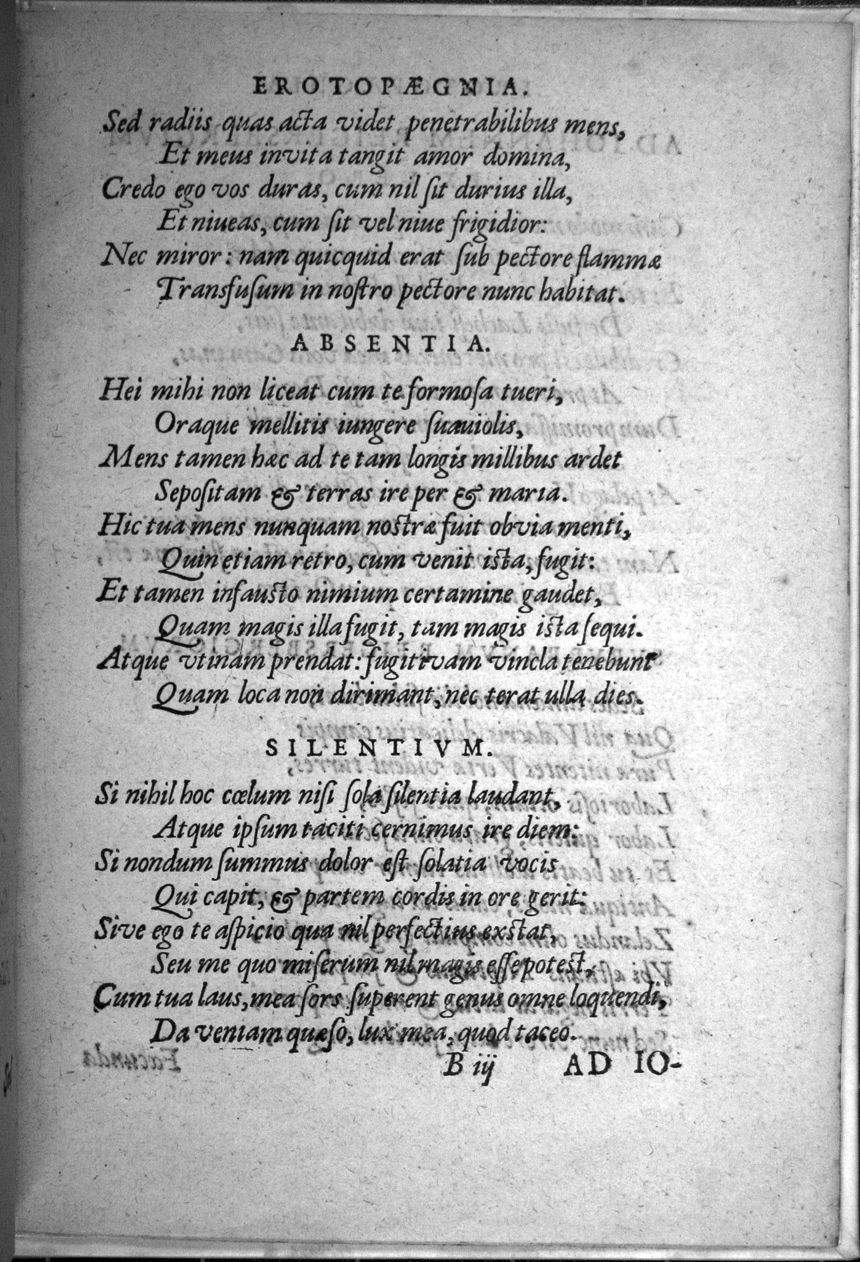 EROTOPÆGNIA.
Sed radiis quas acta videt penetrabilibus mens,
Et meus invita tangit amor domina,
Credo ego vos duras, cum nil sit durius illa,
Et niueas, cum sit vel niue frigidior:
Nec miror: nam quicquid erat sub pectore flammæ
Transfusum in nostro pectore nunc habitat.
ABSENTIA.
Hei mihi non liceat cum te formosa tueri,
Oraque mellitis iungere suauiolis,
Mens tamen hæc ad te tam longis millibus ardet
Sepositam & terras ire per & maria.
Hic tua mens nunquam nostræ fuit obvia menti,
Quin etiam retro, cum venit ista, fugit:
Et tamen infausto nimium certamine gaudet,
Quam magis illa fugit, tam magis ista sequi.
Atque vtinam prendat: fugitivam vincla tenebunt
Quam loca non dirimant, nec terat ulla dies.
SILENTIVM.
Si nihil hoc cœlum nisi sola silentia laudant,
Atque ipsum taciti cernimus ire diem:
Si nondum summus dolor est solatia vocis
Qui capit, & partem cordis in ore gerit:
Sive ego te aspicio qua nil perfectius exstat,
Seu me quo miserum nil magis esse potest,
Cum tua laus, mea sors superent genus omne loquendi,
Da veniam quæso, lux mea, quod taceo.
B iij AD IO-